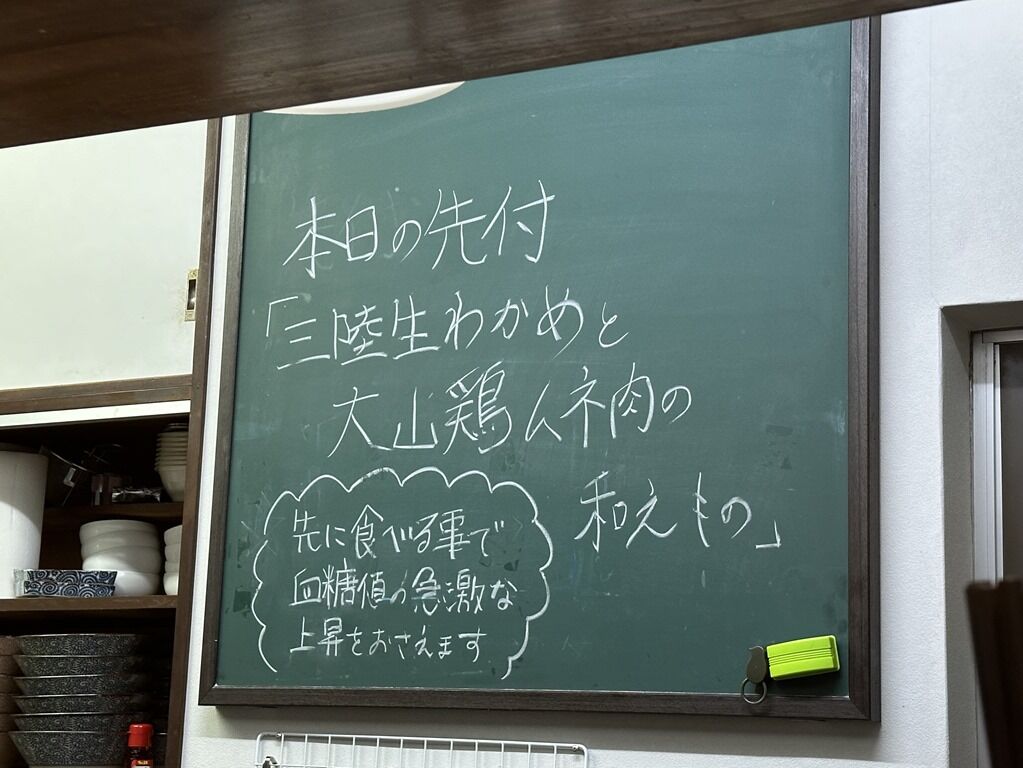 本日の先付
「三陸生わかめと
大山鶏ムネ肉の
和えもの」
先に食べる事で
血糖値の急激な
上昇をおさえます